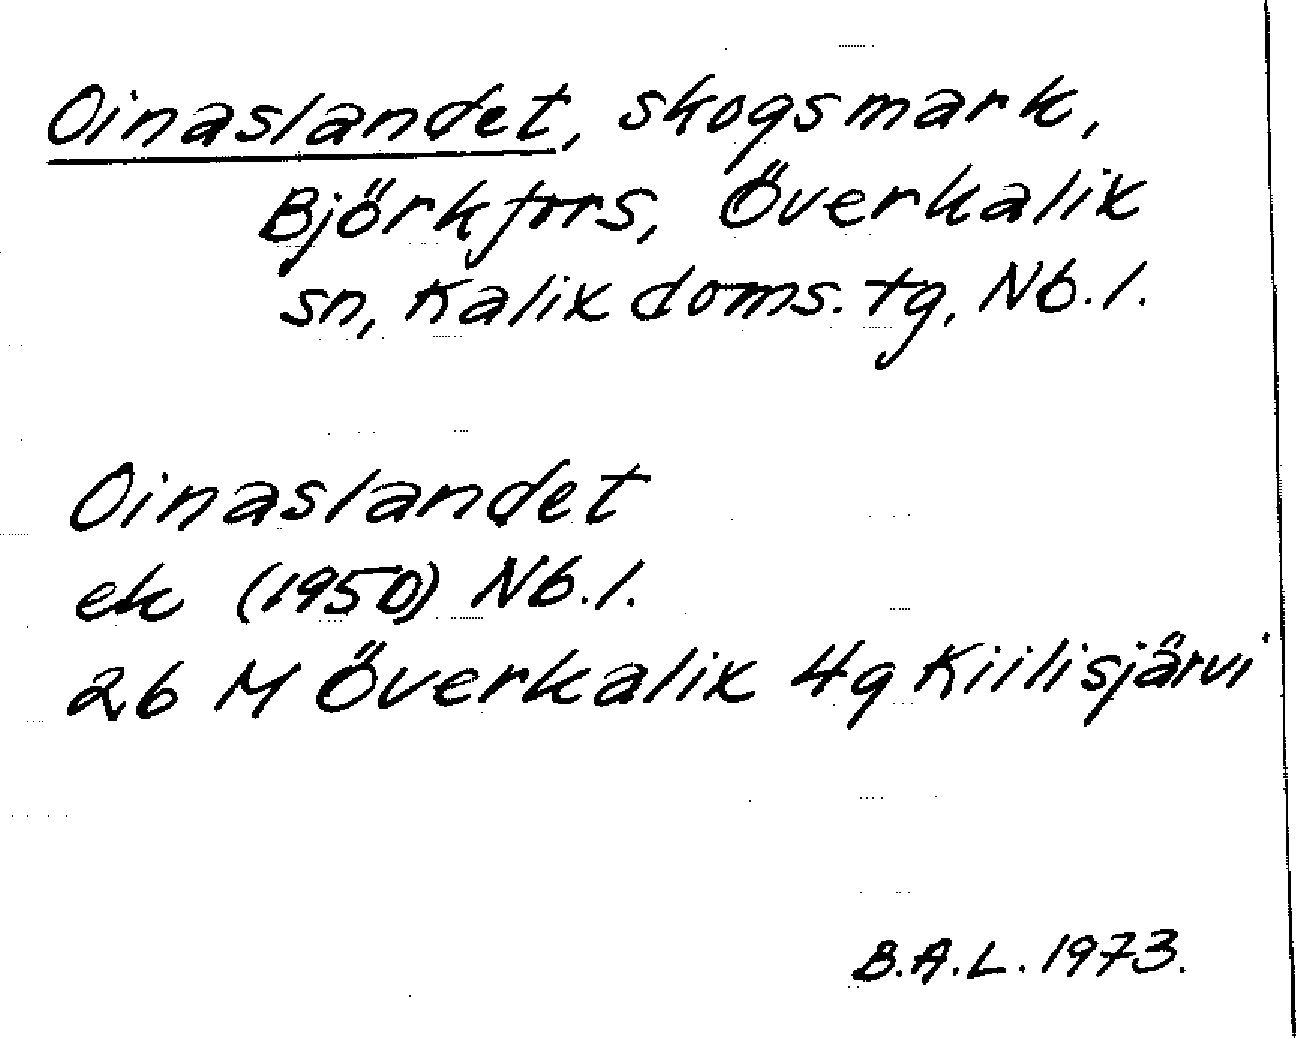 Oinaslandet, skogsmark,
Björkfors, Överkalix
sn, Kalix doms. tg, Nb. l.
Oinaslandet
ek (1950) Nb. l.
26 M Överkalix 4g Kiilisjärvi
B.A.L. 1973.